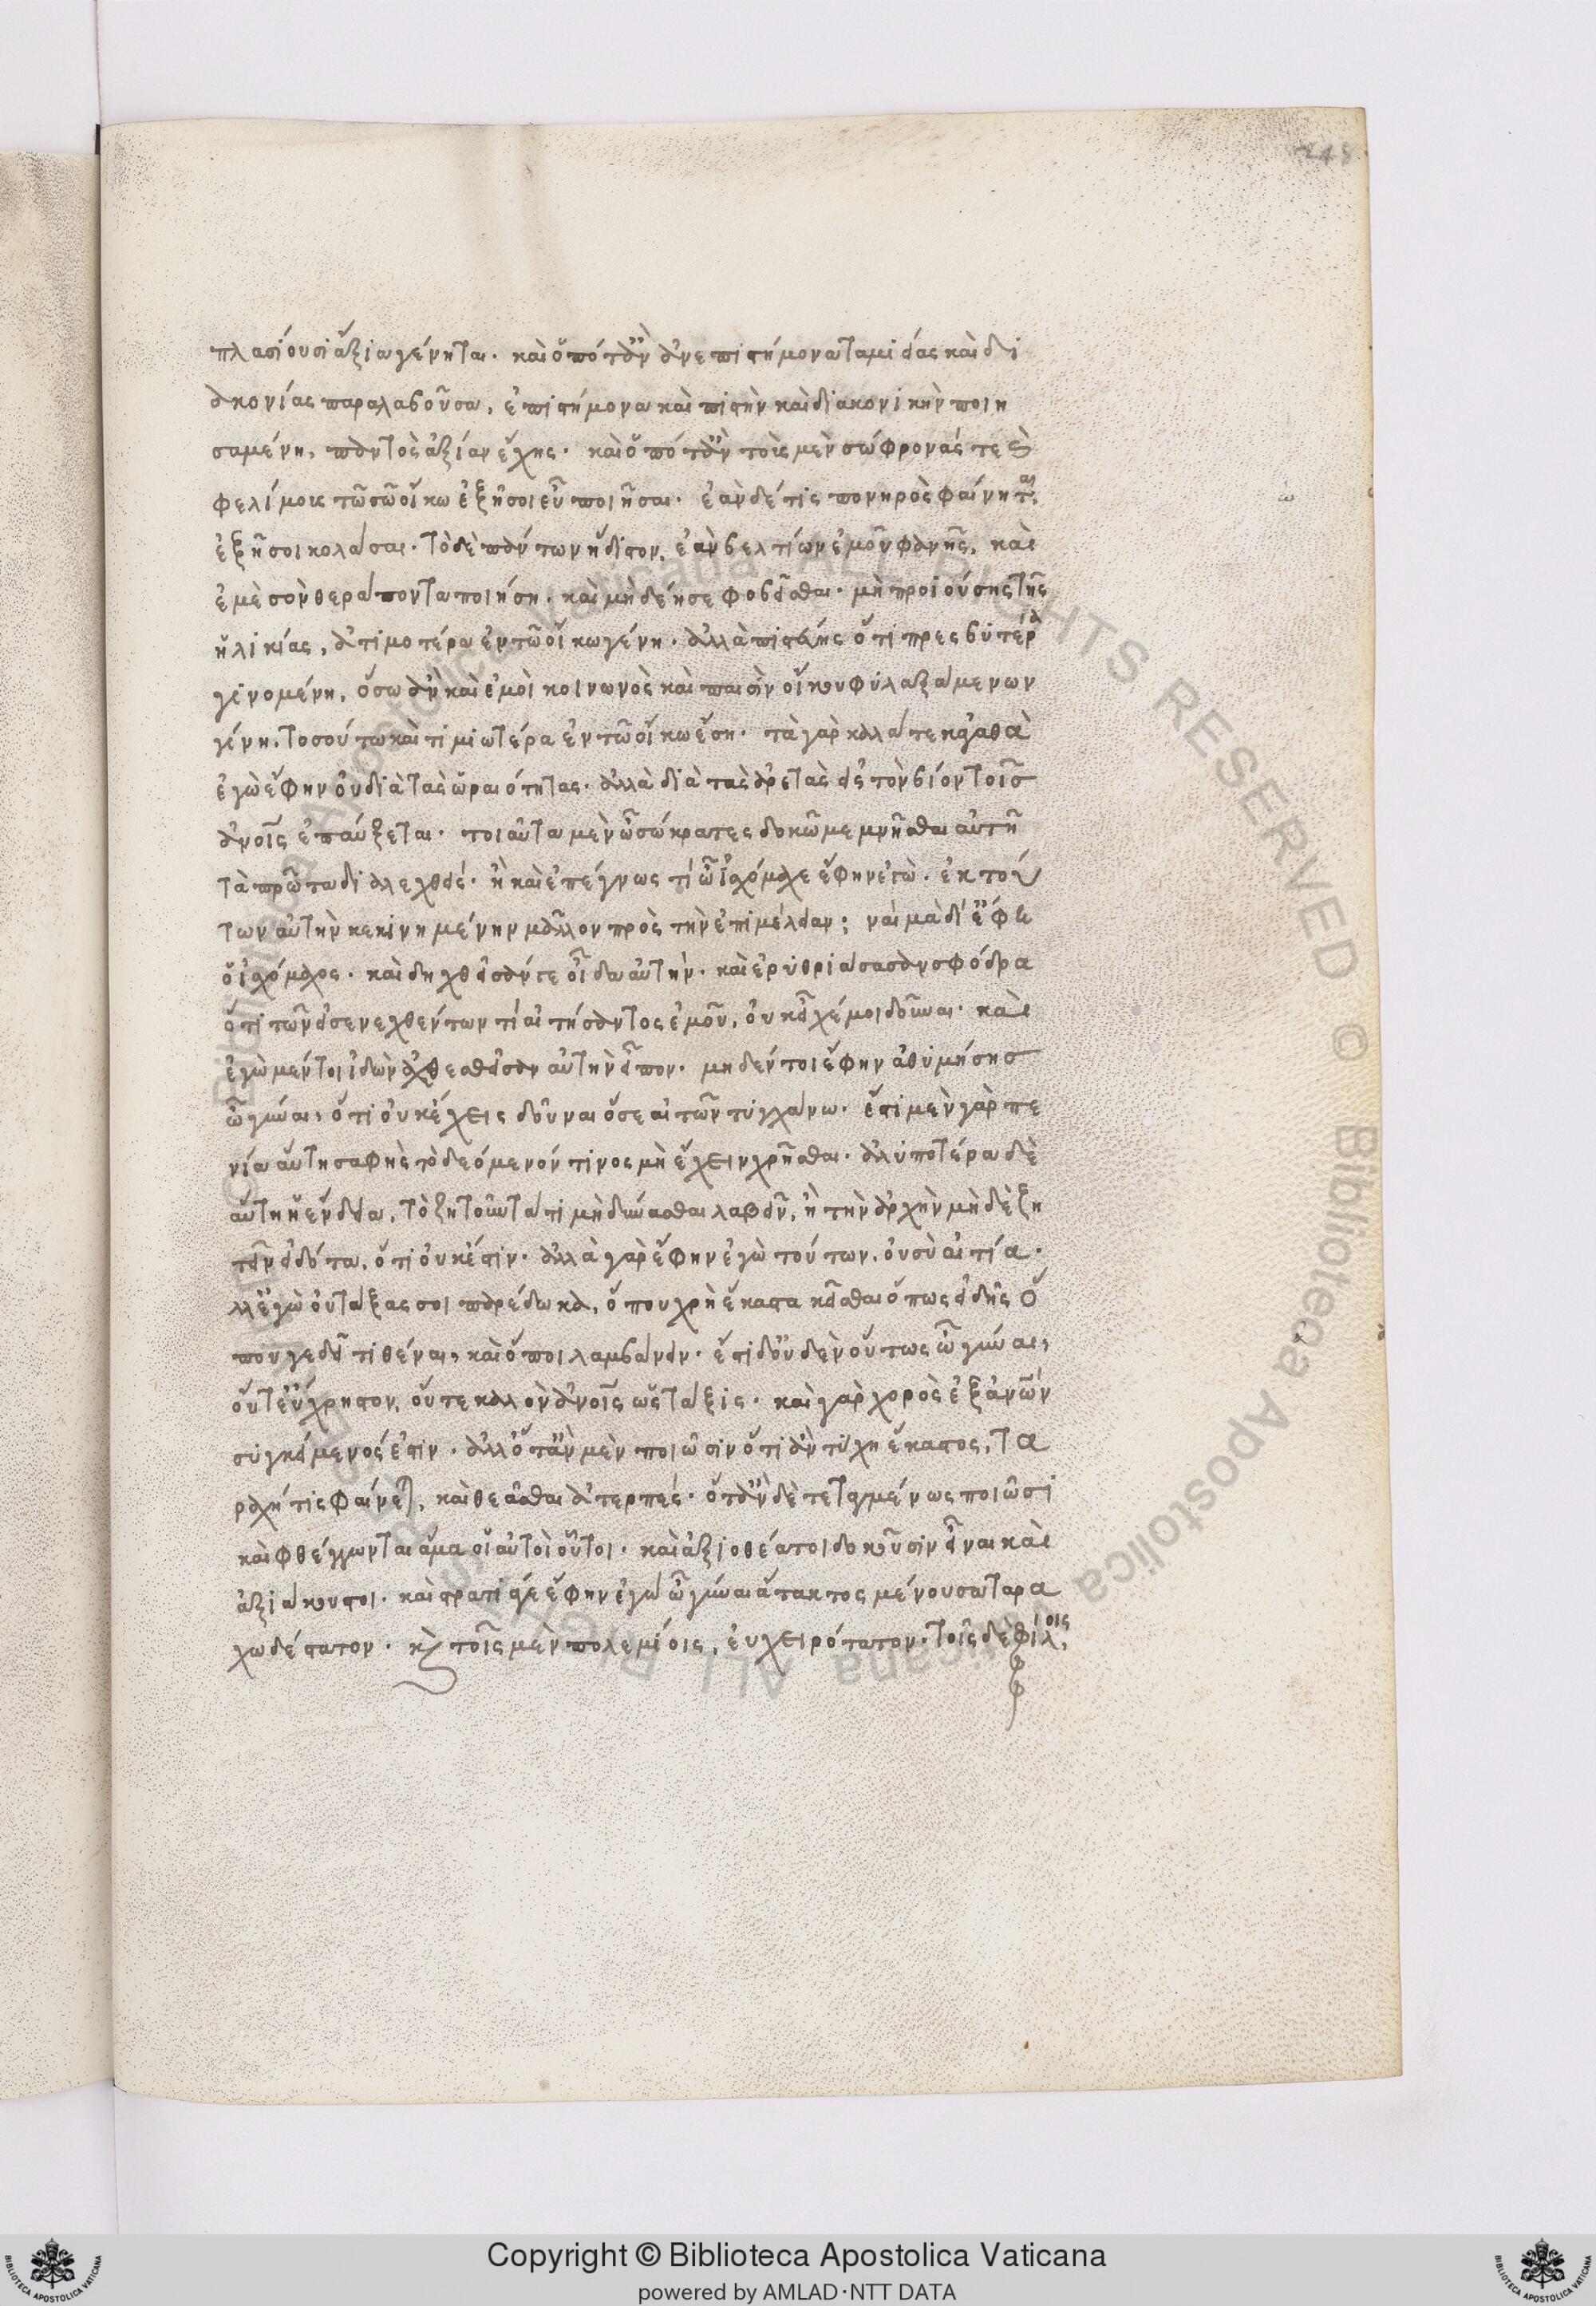 248
πλασίου σοι ἀξία γένηται. καὶ ὁπόταν ἀνεπιστήμονα ταμιείας καὶ δι
ακονίας παραλαβοῦσα, ἐπιστήμονα καὶ πιστὴν καὶ διακονικὴν ποιη
σαμένη, παντὸς ἀξίαν ἔχης. καὶ ὁπόταν τοὺς μὲν σώφρονάς τε καὶ ὠ
φελίμους τῶ σῶ οἴκω ἐξῆ σοι εὖ ποιῆσαι. ἐὰν δέ τις πονηρὸς φαίνηται,
ἐξῆ σοι κολάσαι. τὸ δὲ πάντων ἥδιστον, ἐὰν βελτίων ἐμοῦ φανῆς, καὶ
ἐμὲ σὸν θεράποντα ποιήση. καὶ μὴ δέη σε φοβεῖσθαι. μὴ προϊούσης τῆς
ἡλικίας, ἀτιμοτέρα ἐν τῶ οἴκω γένη. ἀλλὰ πιστεύης ὅτι πρεσβυτέρα
γινομένη, ὅσω ἂν καὶ ἐμοὶ κοινωνὸς καὶ παισὶν οἴκου φυλαξαμενων
γένη, τοσούτω καὶ τιμιωτέρα ἐν τῶ οἴκω ἔση. τὰ γὰρ καλά τε κἀγαθὰ
ἐγὼ ἔφην οὐ διὰ τὰς ὡραιότητας. ἀλλὰ διὰ τὰς ἀρετὰς εἰς τὸν βίον τοῖς
ἀνοις ἐπαύξεται. τοιαῦτα μὲν ὦ σώκρατες δοκῶ μεμνῆσθαι αὐτῆ
τὰ πρῶτα διαλεχθείς. ἦ καὶ ἐπέγνως τί ὦ ἰσχόμαχε ἔφην ἐγὼ. ἐκ τού
των αὐτὴν κεκινημένην μᾶλλον πρὸς τὴν ἐπιμέλειαν; ναὶ μὰ δί ἔφη
ὁ ἰσχόμαχος. καὶ δηχθεῖσάν γε οἶδα αὐτὴν. καὶ ἐρυθριάσασαν σφόδρα
ὅτι τῶν εἰσενεχθέντων τί αἰτήσαντος ἐμοῦ, οὐκ εἶχέ μοι δοῦναι. καὶ
ἐγὼ μέντοι ἰδὼν ἀχθεσθεῖσαν αὐτὴν εἶπον. μηδέν τοι ἔφην ἀθυμήσης
ὦ γύναι, ὅτι οὐκ ἔχεις δοῦναι ὅ σε αἰτῶν τυγχάνω. ἔστι μὲν γὰρ πε
νία αὕτη σαφὴς τὸ δεόμενόν τινος μὴ ἔχειν χρῆσθαι. ἀλυποτέρα δὲ
αὕτη ἡ ἔνδεια, τὸ ζητοῦντά τι μὴ δύνασθαι λαβεῖν, ἢ τὴν ἀρχὴν μηδὲ ζη
τεῖν εἰδότα, ὅτι οὐκ ἔστιν. ἀλλὰ γὰρ ἔφην ἐγὼ τούτων, οὐ σὺ αἰτία.
λλ ἐγὼ οὐ τάξας σοι παρέδωκα, ὅπου χρὴ ἕκαστα κεῖσθαι ὅπως εἰδῆς ὅ
που γε δεῖ τιθέναι, καὶ ὅποι λαμβάνειν. ἔστι δ οὐδὲν οὕτως ὦ γύναι,
οὔτ εὔχρηστον, οὔτε καλὸν ἀνοις ὡς τάξις. καὶ γὰρ χορὸς ἐξ ἀνων
συγκείμενός ἐστιν. ἀλλ ὅταν μὲν ποιῶσιν ὅτι ἂν τύχη ἕκαστος, τα
ραχή τις φαίνεται, καὶ θεᾶσθαι ἀτερπές. ὅταν δὲ τεταγμένως ποιῶσι
καὶ φθέγγωνται ἅμα οἱ αὐτοὶ οὗτοι. καὶ ἀξιοθέατοι δοκοῦσιν εἶναι καὶ
ἀξιάκουστοι. καὶ στρατιά γε ἔφην ἐγὼ ὦ γύναι ἄτακτος μένουσα ταρα
χωδέστατον. καὶ τοῖς μὲν πολεμίοις, εὐχειρότατον. τοῖς δὲ φίλοις,
Copyright © Biblioteca Apostolica Vaticana
powered by AMLAD·NTT DATA